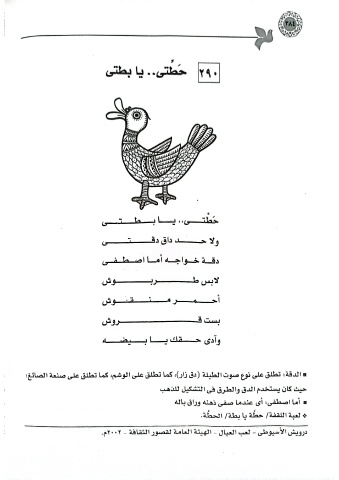 ٢٨٤
٢٩٠ حَطِّتى.. يا بطتى
حَطّتى.. يا بطتى
ولا حد داق دقتى
دقة خواجه أما اصطفى
لابس طربوش
أحمر منقوش
بست قروش
وآدى حقك يا بيضه
■ الدقة: تطلق على نوع صوت الطبلة (دق زار)، كما تطلق على الوشم، كما تطلق على صنعة الصائغ؛
حيث كان يستخدم الدق والطرق فى التشكيل للذهب
■ أما اصطفى: أى عندما صفى ذهنه وراق باله
❖ لعبة الثقفة/ حطة يا بطة/ الحطّة.
درويش الأسيوطى - لعب العيال - الهيئة العامة لقصور الثقافة - ٢٠٠٢م.